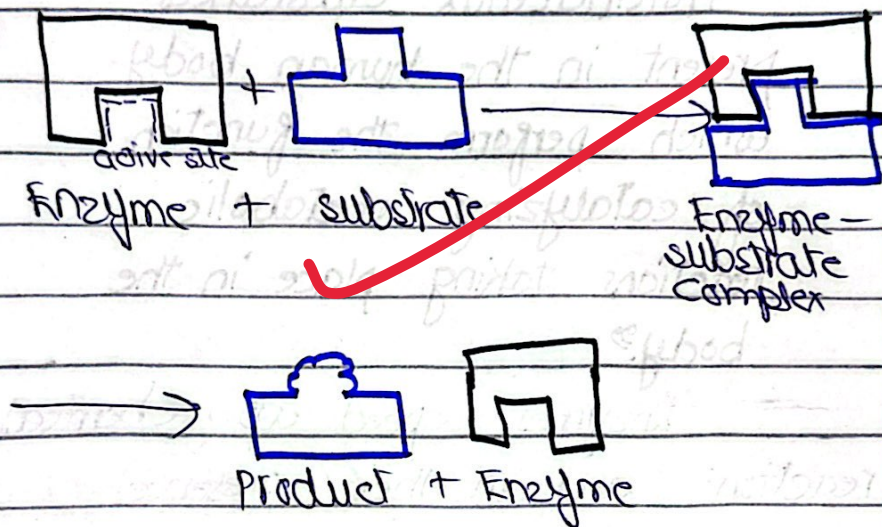 +
active site
Enzyme + substrate
Enzyme-
substrate
complex
Product + Enzyme